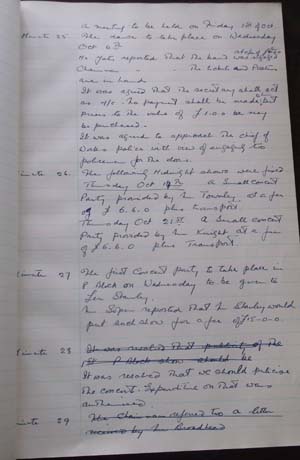 A meeting to be held on Friday 1st of Oct.
Minute 25. The dance to take place on Wednesday
Oct 6th
Mr Yates reported that the band was engaged
Chairman " " The tickets and Posters
are in hand.
It was agreed that the secretary shall act
as M/C. No payment shall be made, but
prizes to the value of £1.0.0 be may
be purchased.
It was agreed to approach the chief of
Works police with view of engaging two
policemen for the doors.
Minute 26. The following Midnight shows were fixed
Thursday Oct 14th A Small Concert
Party provided by Mr Townley at a fee
of £ 6.6.0 plus transport
Thursday Oct 21st A Small Concert
Party provided by Mr Knight at a fee
of £ 6.6.0 plus Transport.
Minute 27 The first Concert Party to take place in
P Block on Wednesday to be given to
Len Stanley.
Mr reported that Mr Stanley would
put each show for a fee of £5-0-0.
Minute 28 It was resolved that of the
1st P Block show should be
It was resolved that we should publicise
the concert. Expenditure on that was
authorised
Minute 29 The Chairman referred too a letter
received by Mr Broadbed